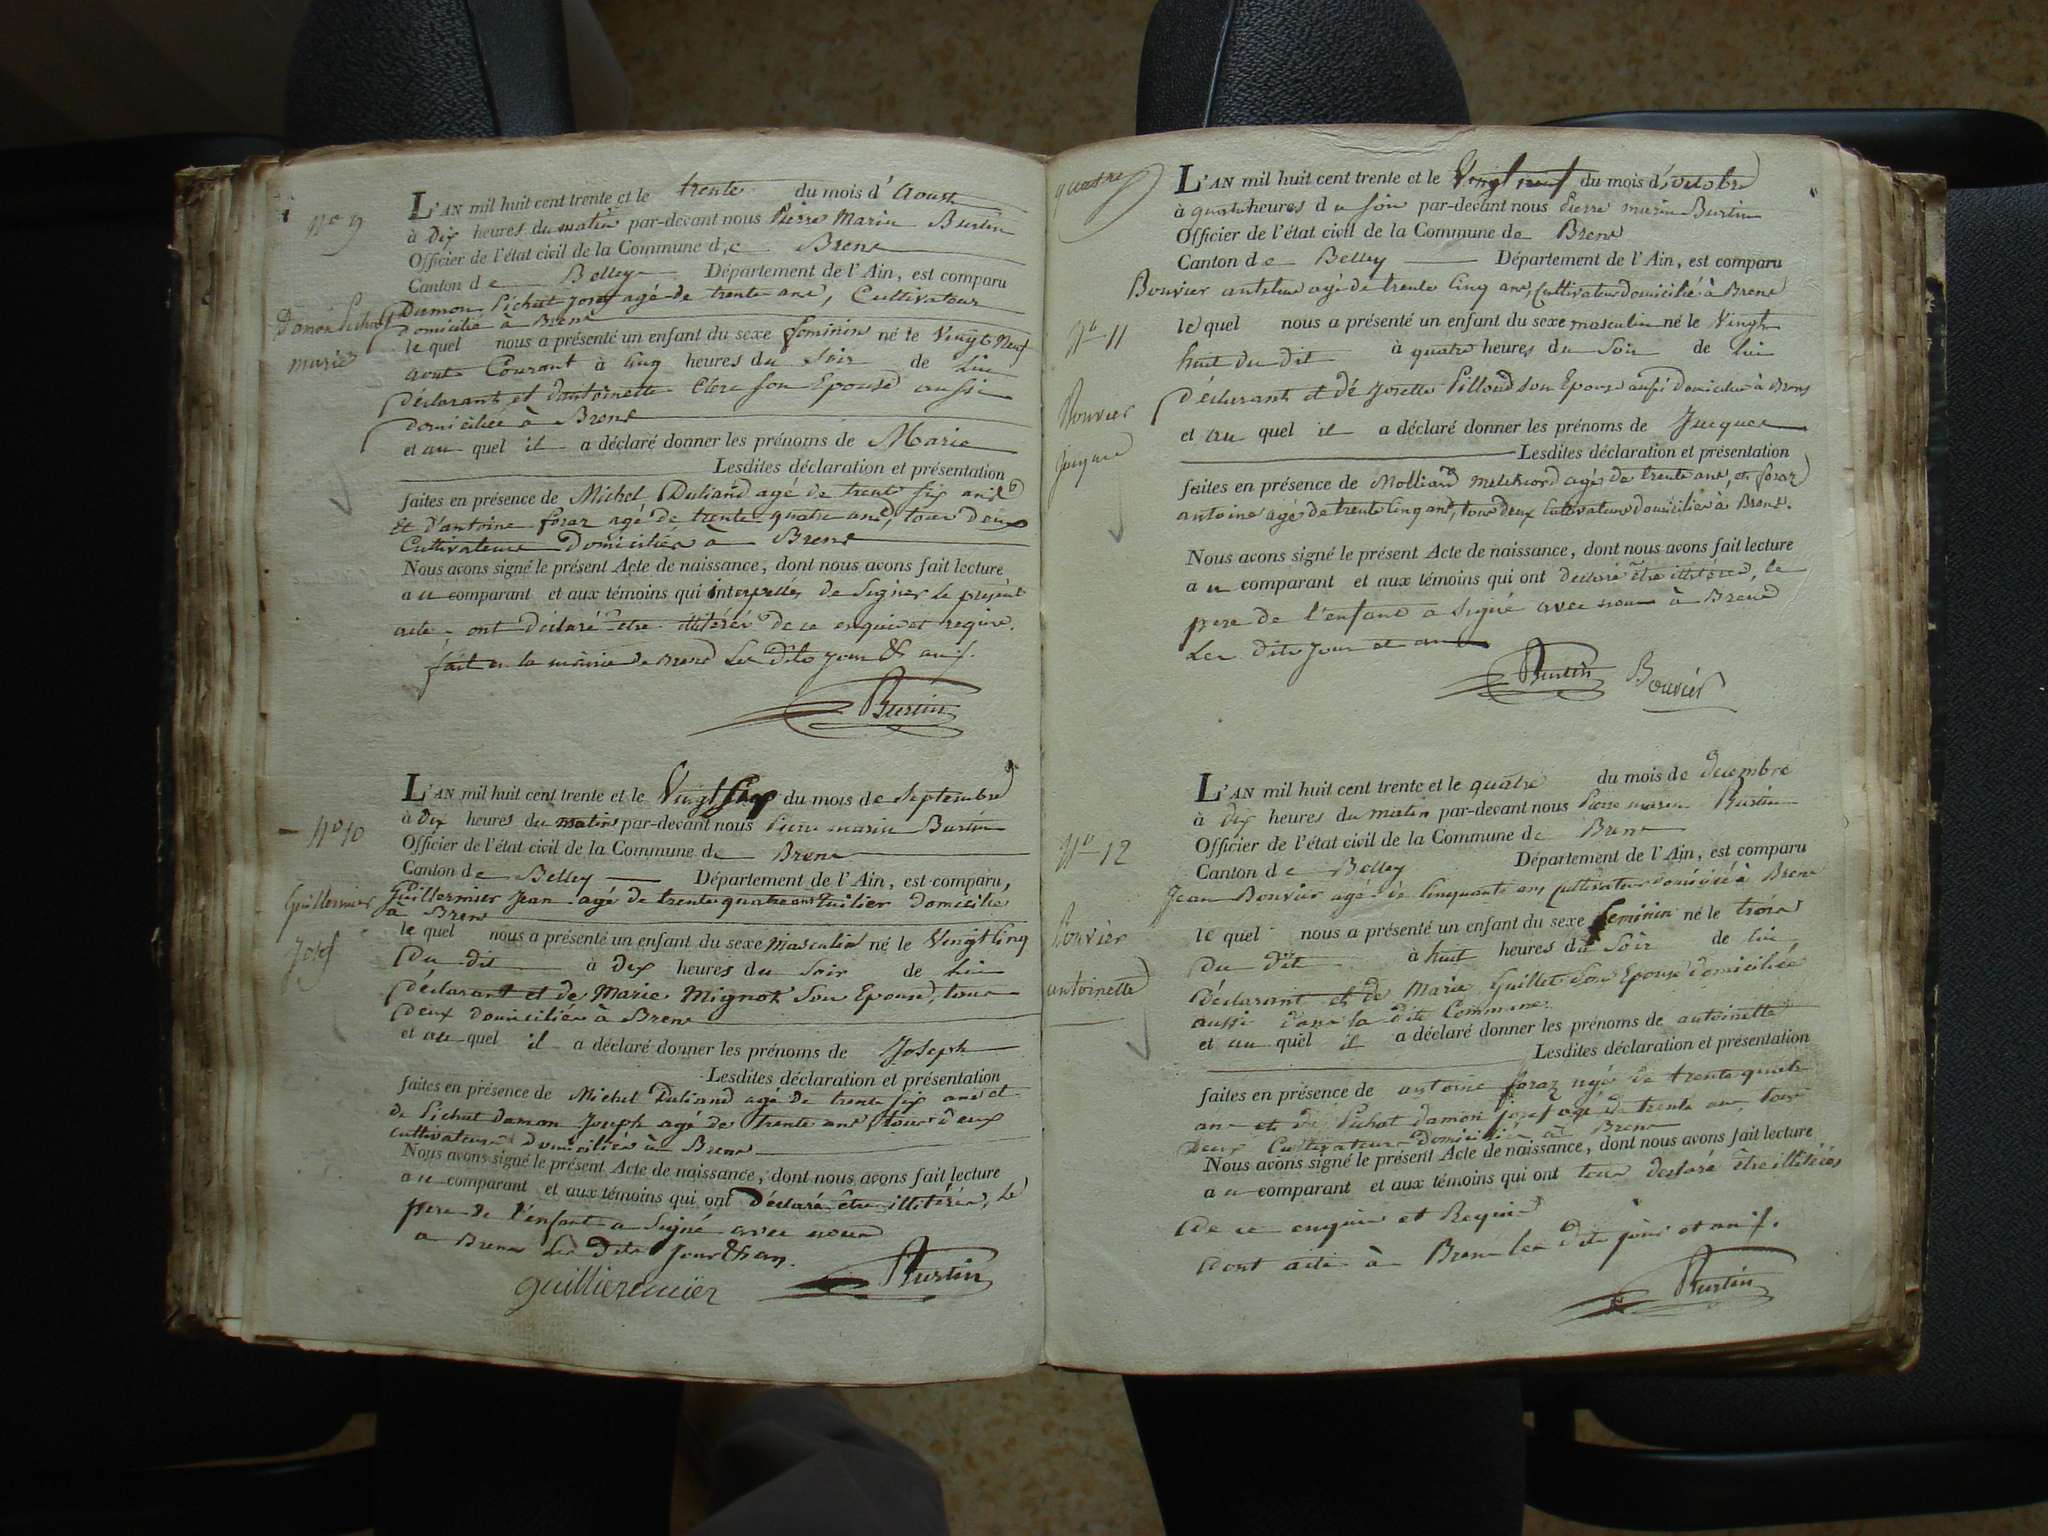 N° 9
Damon Pichat
marie
L'AN mil huit cent trente et le trente du mois d'Aoust
à Dix heures du matin par-devant nous Pierre Marin Burtin
Officier de l'état civil de la Commune de Brens
Canton de Belley Département de l'Ain, est comparu
Damon Pichat Josef agé de trente ans, Cultivateur
Domicilié à Brens
le quel nous a présenté un enfant du sexe feminin né le Vingt Neuf
aout Courant à cinq heures du Soir de Lui
Déclarant et d'antoinette Clerc son Epouse aussi
domiciliée à Brens
et au quel il a déclaré donner les prénoms de Marie
Lesdites déclaration et présentation
faites en présence de Michel Duliand agé de trente six ans
Et d'antoine foraz agé de trente quatre ans, tous deux
Cultivateurs Domiciliés à Brens
Nous avons signé le présent Acte de naissance, dont nous avons fait lecture
au comparant et aux témoins qui interpellés de Signer le présent
acte ont déclaré être illitérés de ce enquis et requis.
fait en la mairie de Brens Les Dits jour & an.
Burtin
N° 10
Guillermier
Josef
L'AN mil huit cent trente et le Vingt Sept du mois de Septembre
à Dix heures du matin par-devant nous Pierre marin Burtin
Officier de l'état civil de la Commune de Brens
Canton de Belley Département de l'Ain, est comparu,
Guillermier Jean agé de trente quatre ans tuilier domicilié
à Brens
le quel nous a présenté un enfant du sexe masculin né le Vingt Cinq
Du dit à Dix heures du Soir de Lui
Déclarant et de Marie Mignot Son Epouse, tous
deux domiciliés à Brens
et au quel il a déclaré donner les prénoms de Joseph
Lesdites déclaration et présentation
faites en présence de Michel Duliand agé de trente six ans et
de Pichat damon Joseph agé de trente ans tous deux
cultivateurs domiciliés à Brens
Nous avons signé le présent Acte de naissance, dont nous avons fait lecture
au comparant et aux témoins qui ont Déclaré être illitérés, le
pere de l'enfant a Signé avec nous
a Brens Les Dits Jour & an.
guillieremier Burtin
quatre
N° 11
Bouvier
Jacques
L'AN mil huit cent trente et le Vingt neuf du mois d'octobre
à quatre heures du soir par-devant nous Pierre marin Burtin
Officier de l'état civil de la Commune de Brens
Canton de Belley Département de l'Ain, est comparu
Bouvier antelme agé de trente cinq ans, Cultivateur Domicilié à Brens
le quel nous a présenté un enfant du sexe masculin né le Vingt
huit du dit à quatre heures du Soir de lui
Déclarant et de Josette Pilloud son Epouse aussi Domiciliée à Brens
et au quel il a déclaré donner les prénoms de Jacques
Lesdites déclaration et présentation
faites en présence de Molliard melchiord agé de trente ans, et foraz
antoine agé de trente cinq ans, tous deux Cultivateurs domiciliés à Brens.
Nous avons signé le présent Acte de naissance, dont nous avons fait lecture
au comparant et aux témoins qui ont déclaré être illitérés, le
pere de l'enfant a signé avec nous à Brens
Les dits jour et an
Burtin Bouvier
N° 12
Bouvier
antoinette
L'AN mil huit cent trente et le quatre du mois de decembre
à dix heures du matin par-devant nous Pierre marin Burtin
Officier de l'état civil de la Commune de Brens
Canton de Belley Département de l'Ain, est comparu
Jean Bouvier agé de cinquante ans cultivateur domicilié à Brens
le quel nous a présenté un enfant du sexe feminin né le trois
Du dit à huit heures du Soir de lui
déclarant et de Marie Guillet Son Epouse domiciliée
aussi dans la dite Commune
et au quel il a déclaré donner les prénoms de antoinette
Lesdites déclaration et présentation
faites en présence de antoine foraz agé de trente quatre
ans et de Pichat damon josef agé de trente ans, tous
Deux Cultivateurs Domiciliés à Brens
Nous avons signé le présent Acte de naissance, dont nous avons fait lecture
au comparant et aux témoins qui ont tous déclaré être illitérés
De ce enquis et Requis
Dont acte à Brens les dits jour et an.
Burtin